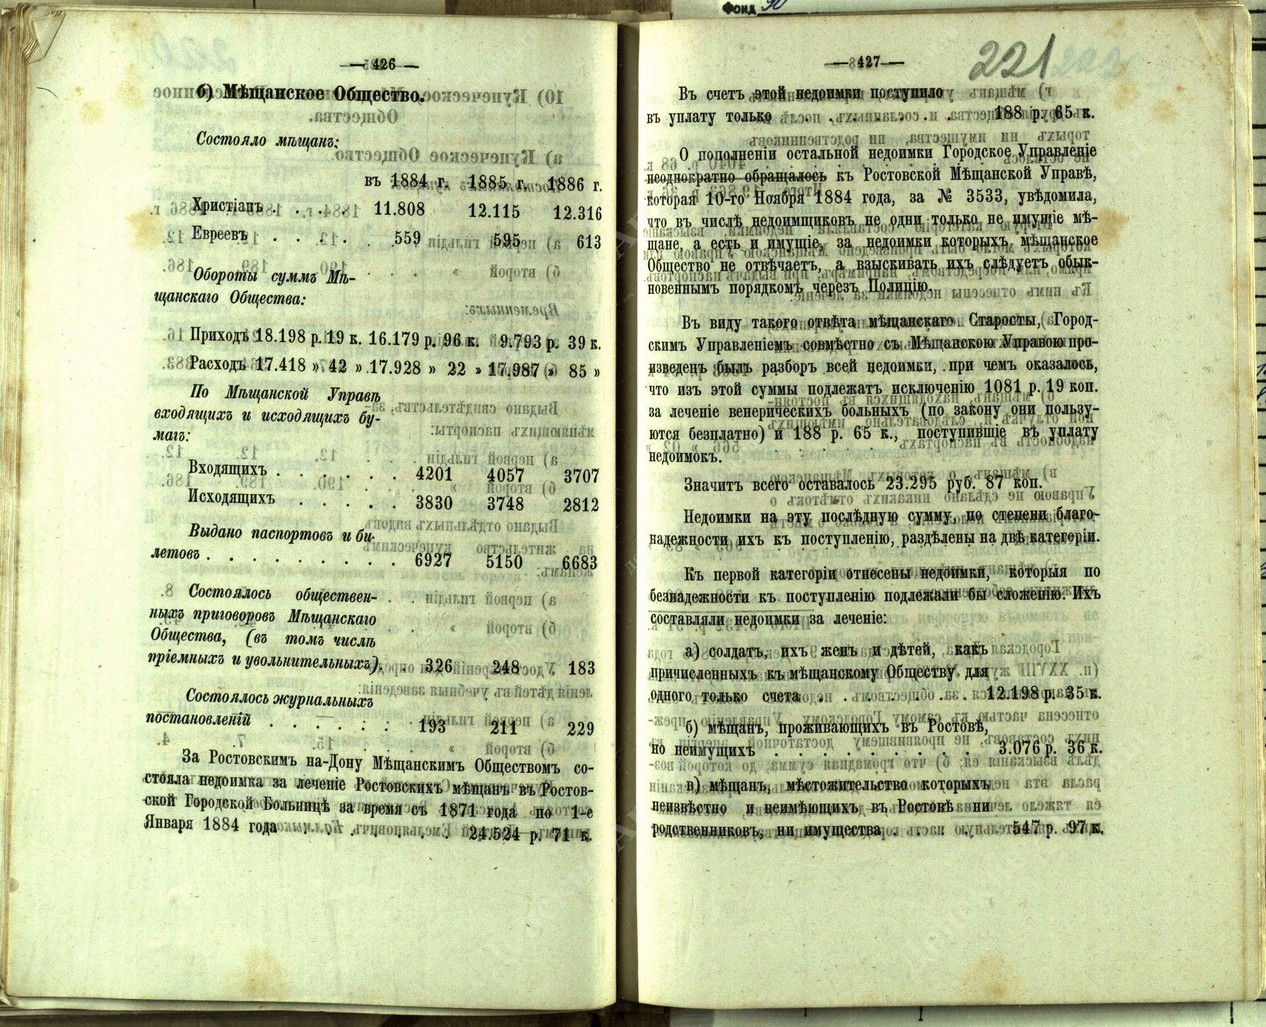 Фонд 90
— 426 —
б) Мѣщанское Общество.
Состояло мѣщанъ:
въ 1884 г. 1885 г. 1886 г.
Христіанъ . . . . . 11.808 12.115 12.316
Евреевъ . . . . . 559 595 613
Обороты суммъ Мѣ-
щанскаго Общества:
Приходъ 18.198 р. 19 к. 16.179 р. 96 к. 9.793 р. 39 к.
Расходъ 17.418 » 42 » 17.928 » 22 » 17,987 » 85 »
По Мѣщанской Управѣ
входящихъ и исходящихъ бу-
магъ:
Входящихъ . . . . . . 4201 4057 3707
Исходящихъ . . . . . 3830 3748 2812
Выдано паспортовъ и би-
летовъ . . . . . . . . 6927 5150 6683
Состоялось обществен-
ныхъ приговоровъ Мѣщанскаго
Общества, (въ томъ числѣ
пріемныхъ и увольнительныхъ). 326 248 183
Состоялось журнальныхъ
постановленій . . . . . . 193 211 229
За Ростовскимъ на-Дону Мѣщанскимъ Обществомъ со-
стояла недоимка за лечені­е Ростовскихъ мѣщанъ въ Ростов-
ской Городской Больницѣ за время съ 1871 года по 1-е
Января 1884 года . . . . . . 24.524 р. 71 к.
— 427 —
221
Въ счетъ этой недоимки поступило
въ уплату только . . . . . . . . 188 р. 65 к.
О пополненіи остальной недоимки Городское Управленіе
неоднократно обращалось къ Ростовской Мѣщанской Управѣ,
которая 10-го Ноября 1884 года, за № 3533, увѣдомила,
что въ числѣ недоимщиковъ не одни только не имущіе мѣ-
щане, а есть и имущіе, за недоимки которыхъ мѣщанское
Общество не отвѣчаетъ, а взыскивать ихъ слѣдуетъ обык-
новеннымъ порядкомъ черезъ Полицію.
Въ виду такого отвѣта мѣщанскаго Старосты, Город-
скимъ Управленіемъ совмѣстно съ Мѣщанскою Управою про-
изведенъ былъ разборъ всей недоимки, при чемъ оказалось,
что изъ этой суммы подлежатъ исключенію 1081 р. 19 коп.
за леченіе венерическихъ больныхъ (по закону они пользу-
ются безплатно) и 188 р. 65 к., поступившіе въ уплату
недоимокъ.
Значитъ всего оставалось 23.295 руб. 87 коп.
Недоимки на эту послѣдную сумму, по степени благо-
надежности ихъ къ поступленію, раздѣлены на двѣ категоріи.
Къ первой категоріи отнесены недоимки, которыя по
безнадежности къ поступленію подлежали бы сложенію. Ихъ
составляли недоимки за леченіе:
а) солдатъ, ихъ женъ и дѣтей, какъ
причисленныхъ къ мѣщанскому Обществу для
одного только счета . . . . . . . 12.198 р. 35 к.
б) мѣщанъ, проживающихъ въ Ростовѣ,
но неимущихъ . . . . . . . . 3.076 р. 36 к.
в) мѣщанъ, мѣстожительство которыхъ
неизвѣстно и неимѣющихъ въ Ростовѣ ни
родственниковъ, ни имущества . . . . 547 р. 97 к.